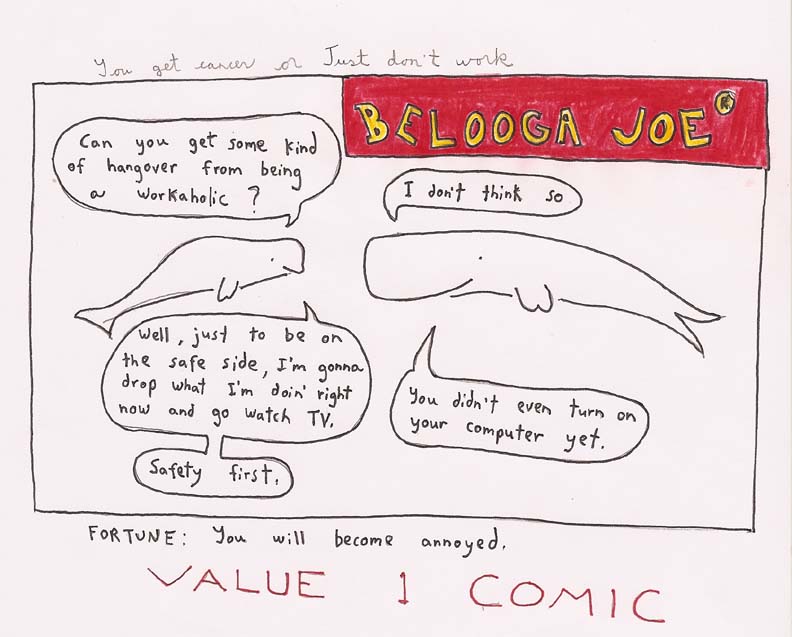 You get cancer or Just don't work
BELOOGA JOE®
Can you get some kind
of hangover from being
a workaholic ?
I don't think so
Well, just to be on
the safe side, I'm gonna
drop what I'm doin' right
now and go watch TV.
Safety first.
You didn't even turn on
your computer yet.
FORTUNE: You will become annoyed.
VALUE 1 COMIC